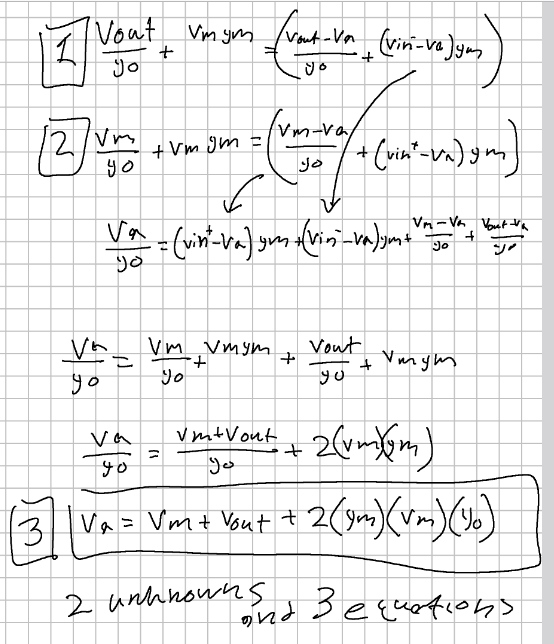 1 Vout/yo + Vm ym = (Vout-Va/yo + (vin⁻-Va)ym)
2 Vm/yo + Vm ym = (Vm-Va/yo + (vin⁺-Va)ym)
Va/yo = (vin⁺-Va)ym + (Vin⁻-Va)ym + Vm-Va/yo + Vout-Va/yo
Va/yo = Vm/yo + Vmym + Vout/yo + Vmym
Va/yo = Vm+Vout/yo + 2(vm)(ym)
3. Va = Vm + Vout + 2(ym)(Vm)(yo)
2 unknowns and 3 equations